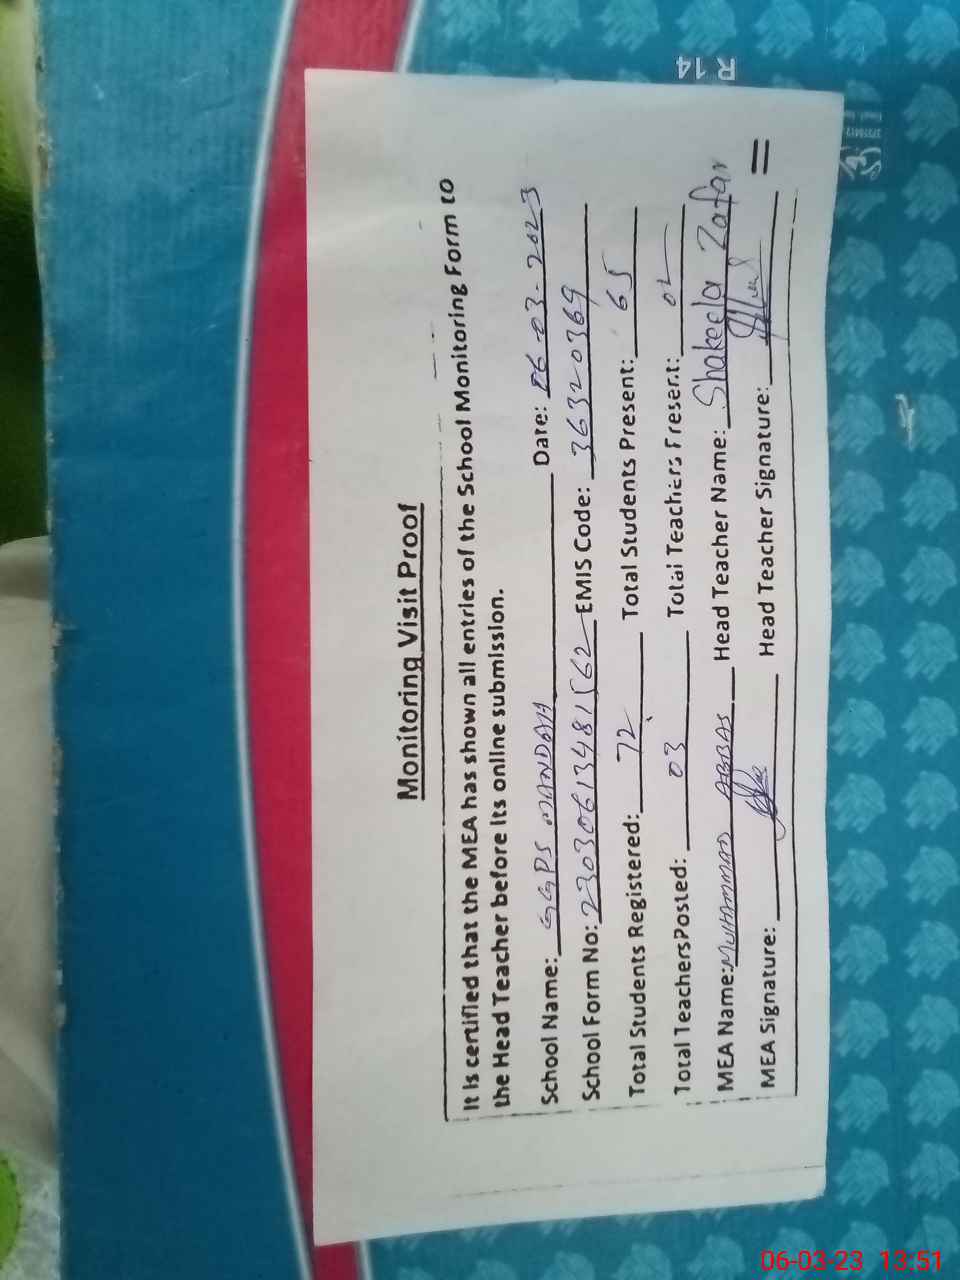 Monitoring Visit Proof
It is certified that the MEA has shown all entries of the School Monitoring Form to
the Head Teacher before its online submission.
School Name: GGPS MANDAH Date: 06-03-2023
School Form No: 23030613481562 EMIS Code: 36320369
Total Students Registered: 72 Total Students Present: 65
Total Teachers Posted: 03 Total Teachers Present: 02
MEA Name: MUHAMMAD ABBAS Head Teacher Name: Shakeela Zafar
MEA Signature: Head Teacher Signature:
R 14
06-03-23 13:51